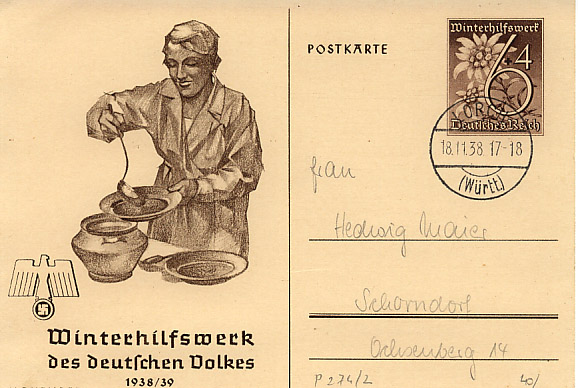 POSTKARTE
Winterhilfswerk
6+4
Deutsches Reich
LORCH
18.11.38.17-18
(Württ)
Frau
Hedwig Maier
Schorndorf
Ochsenberg 14
P 274/2
40/
Winterhilfswerk
des deutschen Volkes
1938/39